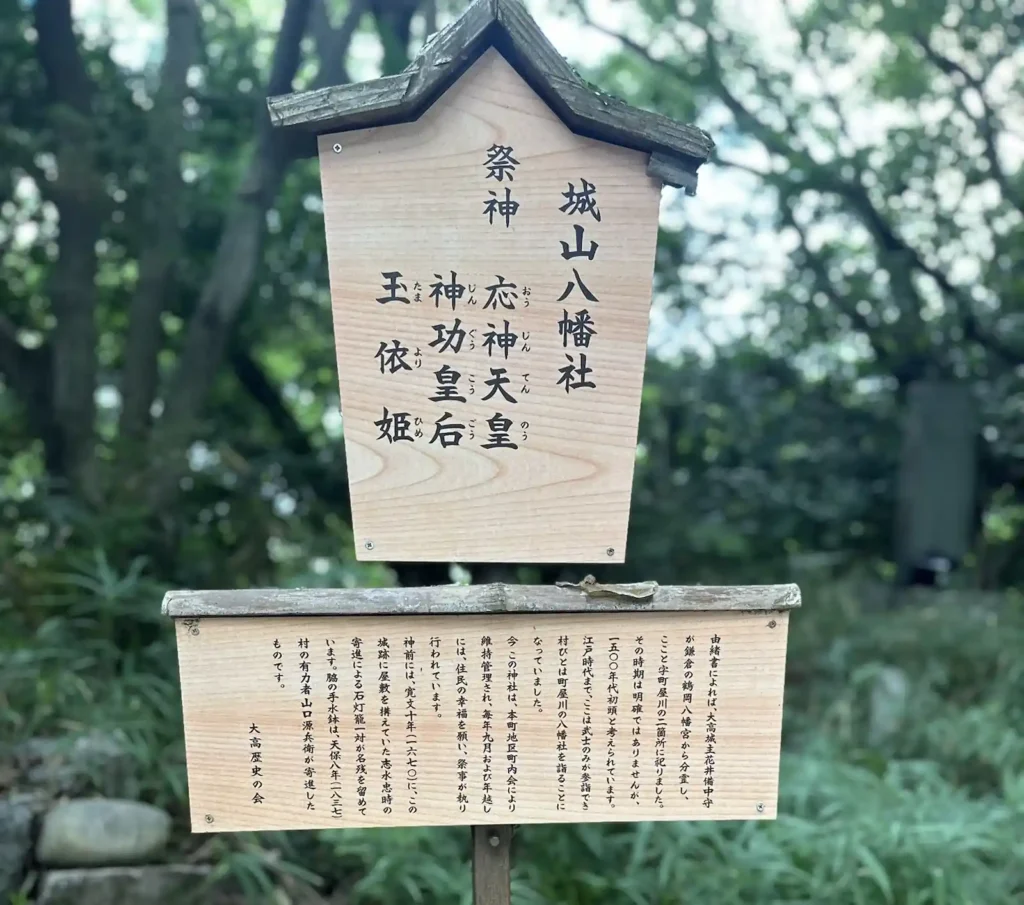 城山八幡社
祭神
応神天皇
おうじんてんのう
神功皇后
じんぐうこうごう
玉依姫
たまよりひめ
由緒書によれば、大高城主花井備中守
が鎌倉の鶴岡八幡宮から分霊し、
ここと字町屋川の二箇所に祀りました。
その時期は明確ではありませんが、
一五〇〇年代初頭と考えられています。
江戸時代まで、ここは武士のみが参詣でき
村びとは町屋川の八幡社を詣ることに
なっていました。
今この神社は、本町地区町内会により
維持管理され、毎年九月および年越し
には、住民の幸福を願い、祭事が執り
行われています。
神前には、寛文十年(一六七〇)に、この
城跡に屋敷を構えていた志水忠時の
寄進による石灯籠一対が名残を留めて
います。脇の手水鉢は、天保八年(一八三七)
村の有力者山口源兵衛が寄進した
ものです。
大高歴史の会